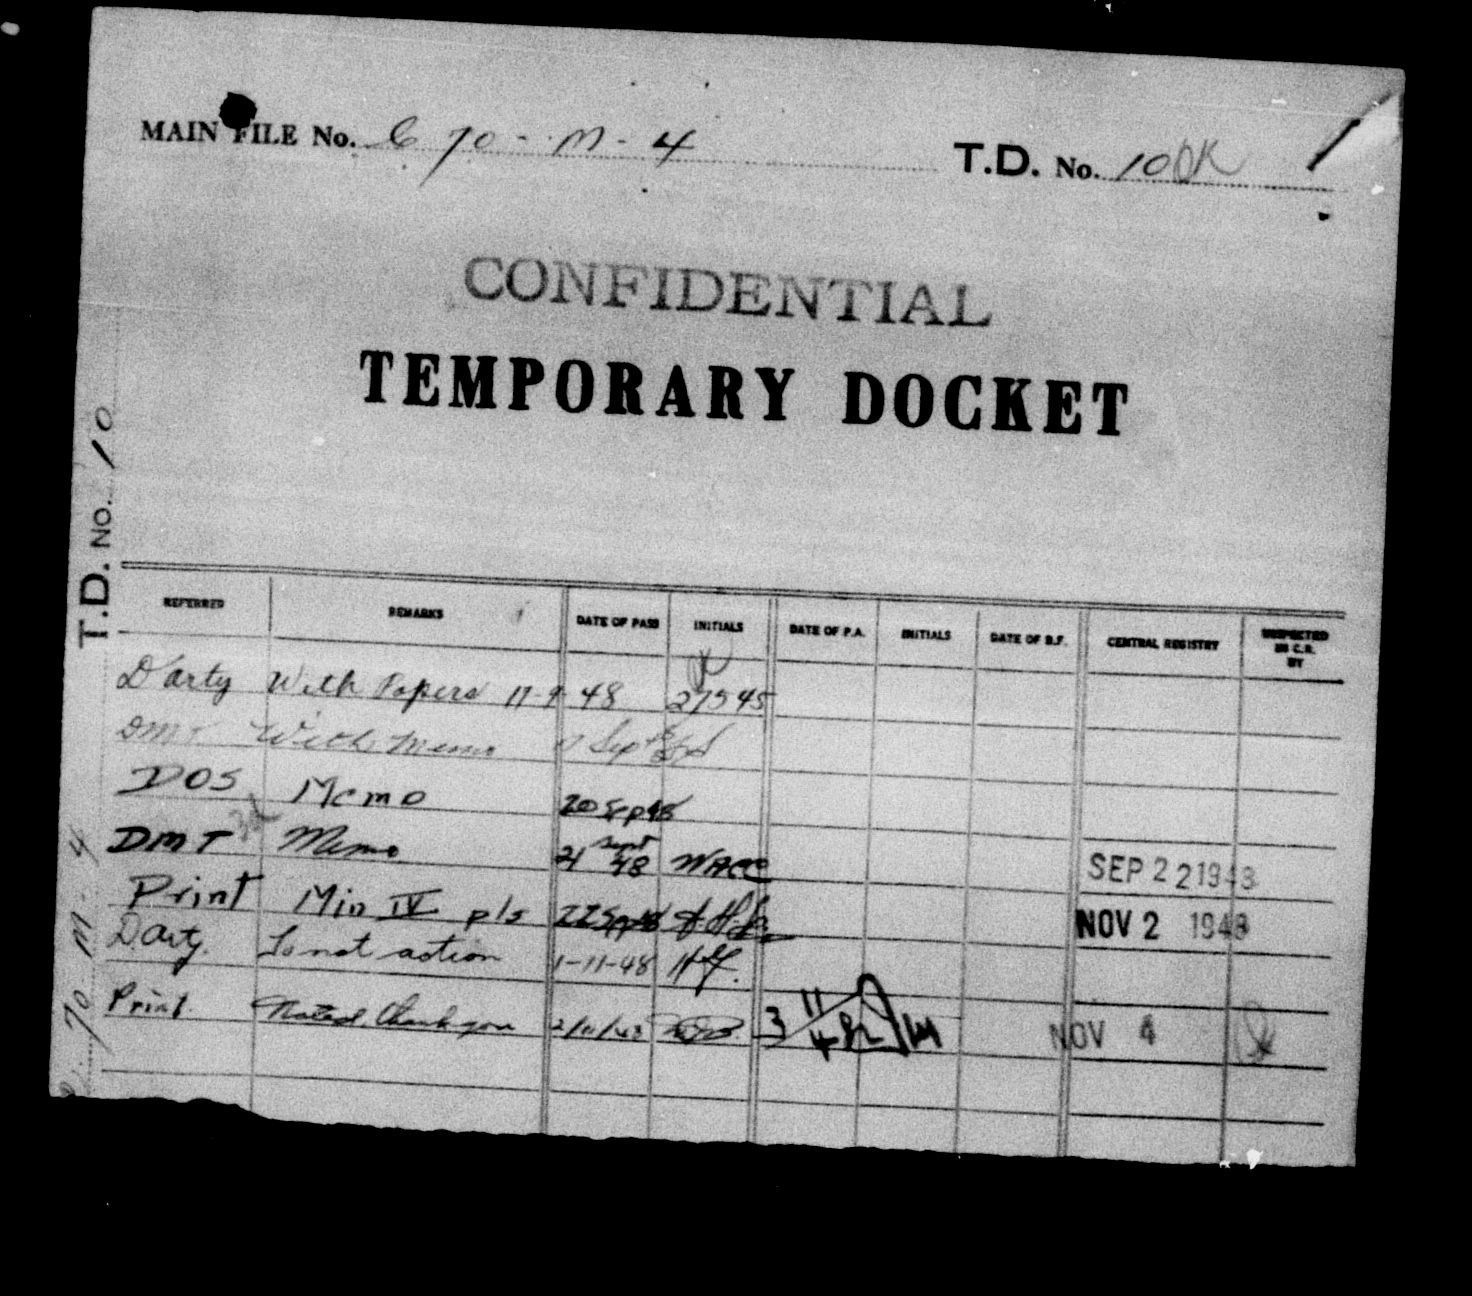 MAIN FILE No. C 70 - M - 4
T.D. No. 10
CONFIDENTIAL
TEMPORARY DOCKET
T.D. NO. 10
70 - M - 4
REFERRED REMARKS DATE OF PASS INITIALS DATE OF P.A. INITIALS DATE OF B.F. CENTRAL REGISTRY INSPECTED IN C.R. BY
D'arty With Papers 17-9 48
DMT With Memo 17 Sept
DOS Memo 20 Sep 48
DMT Memo 21 Sept 48 SEP 22 1948
Print Min IV pls 22 Sep 48 NOV 2 1948
D'arty. To not action 1-11-48
Print. Noted, Thank you 2/11/48 3 11 48 NOV 4